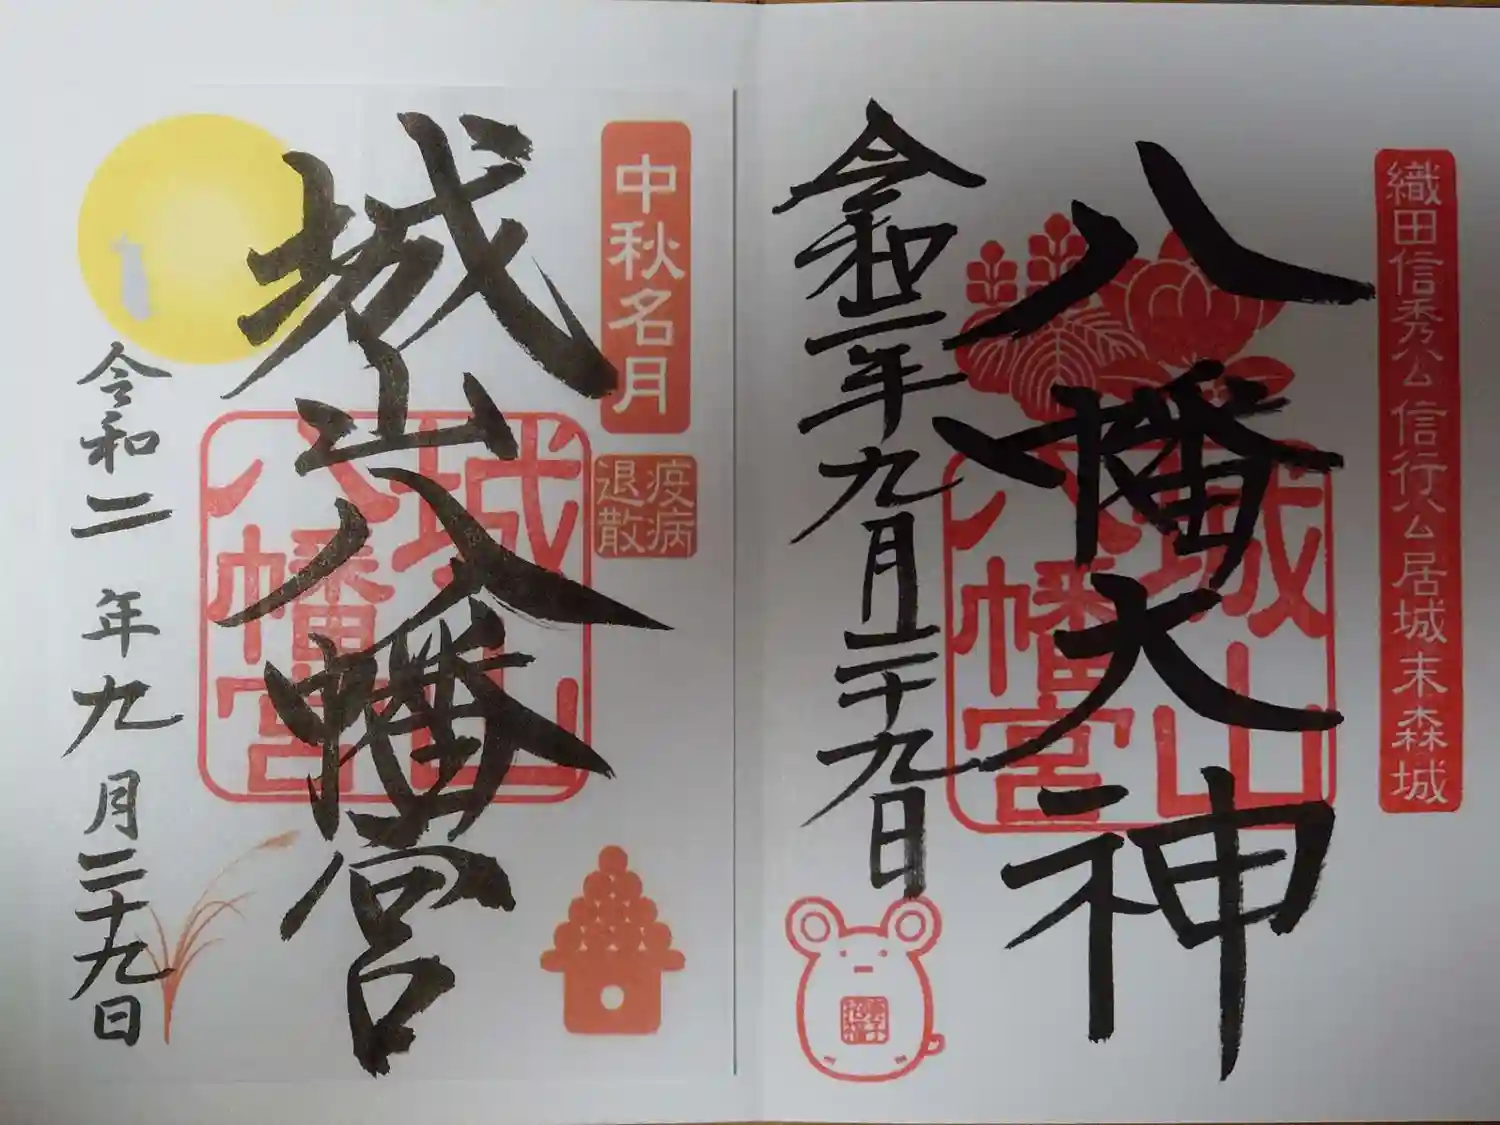 織田信秀公 信行公居城末森城
八幡大神
城山
八幡宮
令和二年九月二十九日
中秋名月
疫病
退散
城山八幡宮
城山
八幡宮
令和二年九月二十九日